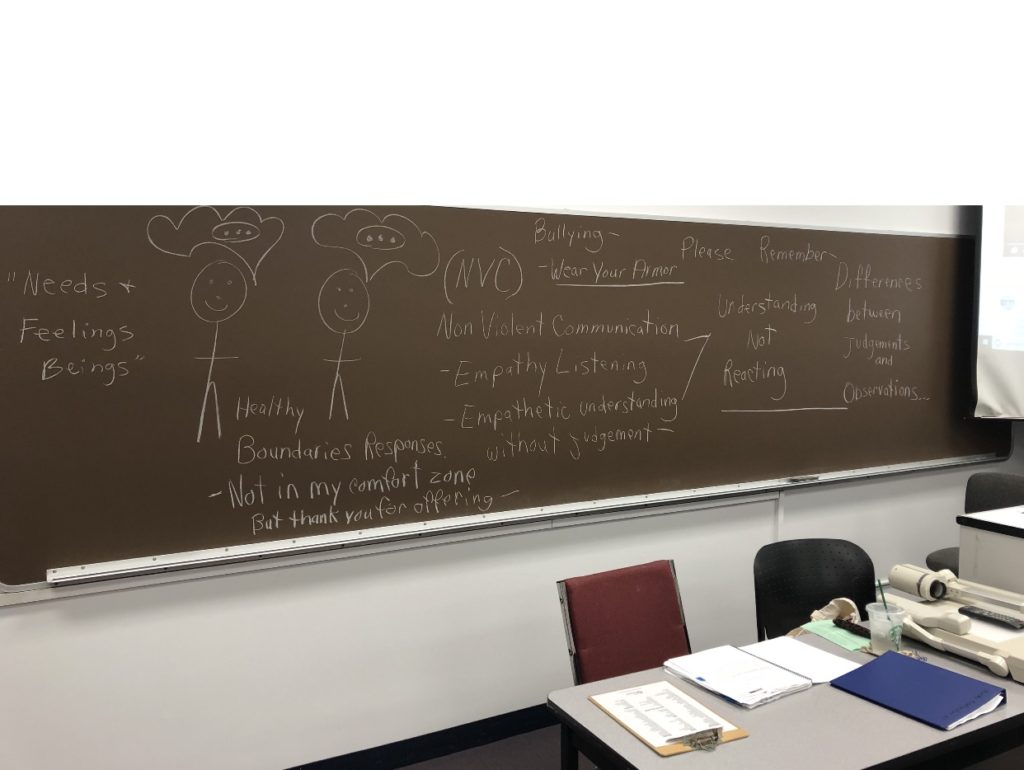 "Needs +
Feelings
Beings"
Healthy
Boundaries Responses.
- Not in my comfort zone
But thank you for offering -
(NVC)
Bullying -
- Wear Your Armor
Non Violent Communication
- Empathy Listening
- Empathetic understanding
without judgement -
Please Remember -
Understanding
Not
Reacting
Differences
between
Judgements
and
Observations...